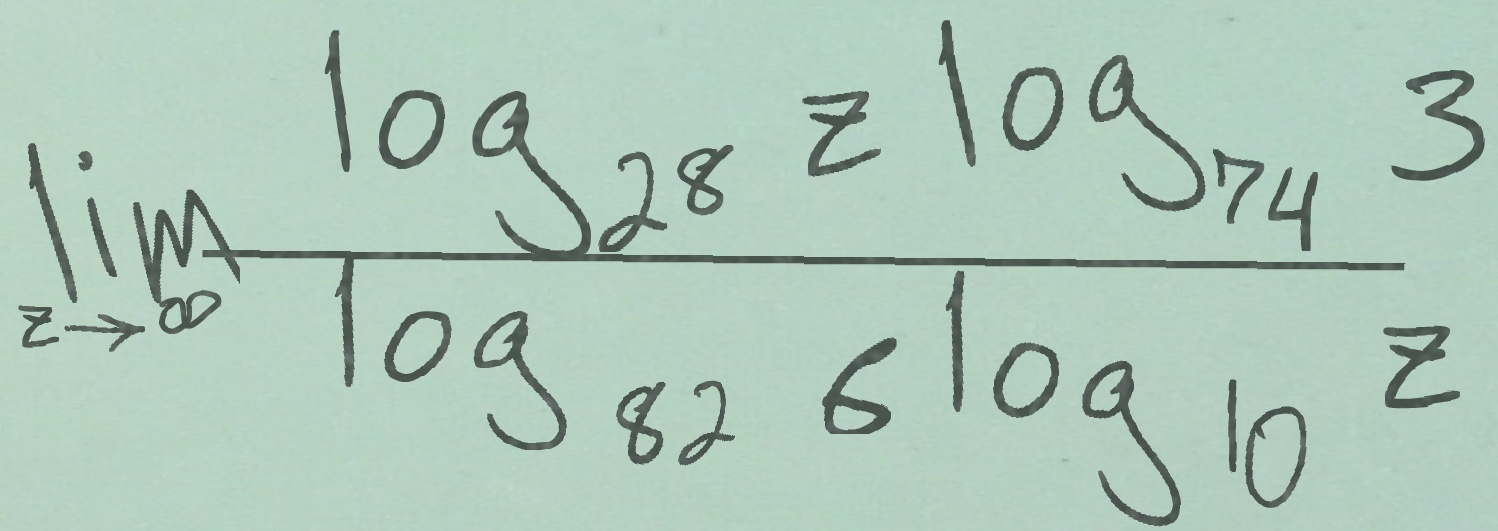 \lim_{z \to \infty} \frac{\log_{28} z \log_{74} 3}{\log_{82} 6 \log_{10} z}